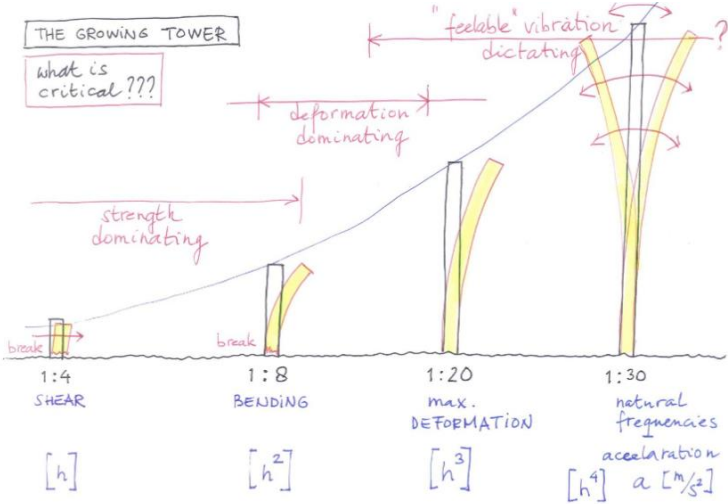 THE GROWING TOWER
what is
critical ???
"feelable" vibration
dictating
?
deformation
dominating
strength
dominating
break
break
1:4
1:8
1:20
1:30
SHEAR
BENDING
max.
DEFORMATION
natural
frequencies
accelaration
[h]
[h²]
[h³]
[h⁴] a [m/s²]